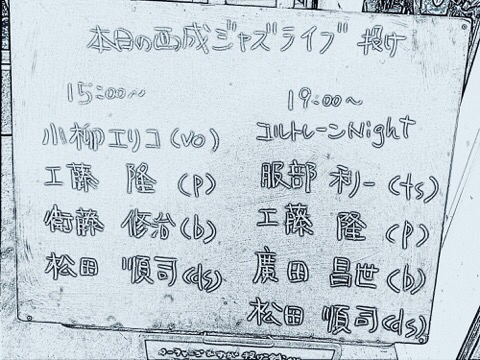 本日の西成ジャズライブ 投げ
15:00～
小柳エリコ(vo)
工藤 隆(p)
衛藤 修治(b)
松田 順司(ds)
19:00～
コルトレーンNight
服部 利一(ts)
工藤 隆(p)
廣田 昌世(b)
松田 順司(ds)